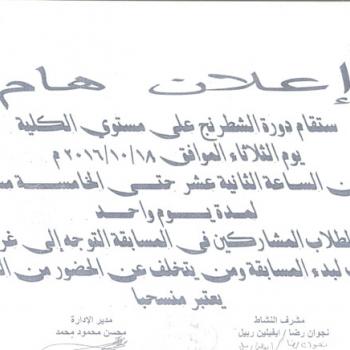 إعلان هام
ستقام دورة الشطرنج على مستوي الكلية
يوم الثلاثاء الموافق ٢٠١٦/١٠/١٨ م
الساعة الثانية عشر حتى الخامسة
لمدة يوم واحد
الطلاب المشاركين في المسابقة التوجه إلى
لبدء المسابقة ومن يتخلف عن الحضور من
يعتبر منسحبا
مشرف النشاط
مدير الإدارة
نجوان رضا / ايفيلين ربيل
محسن محمود محمد